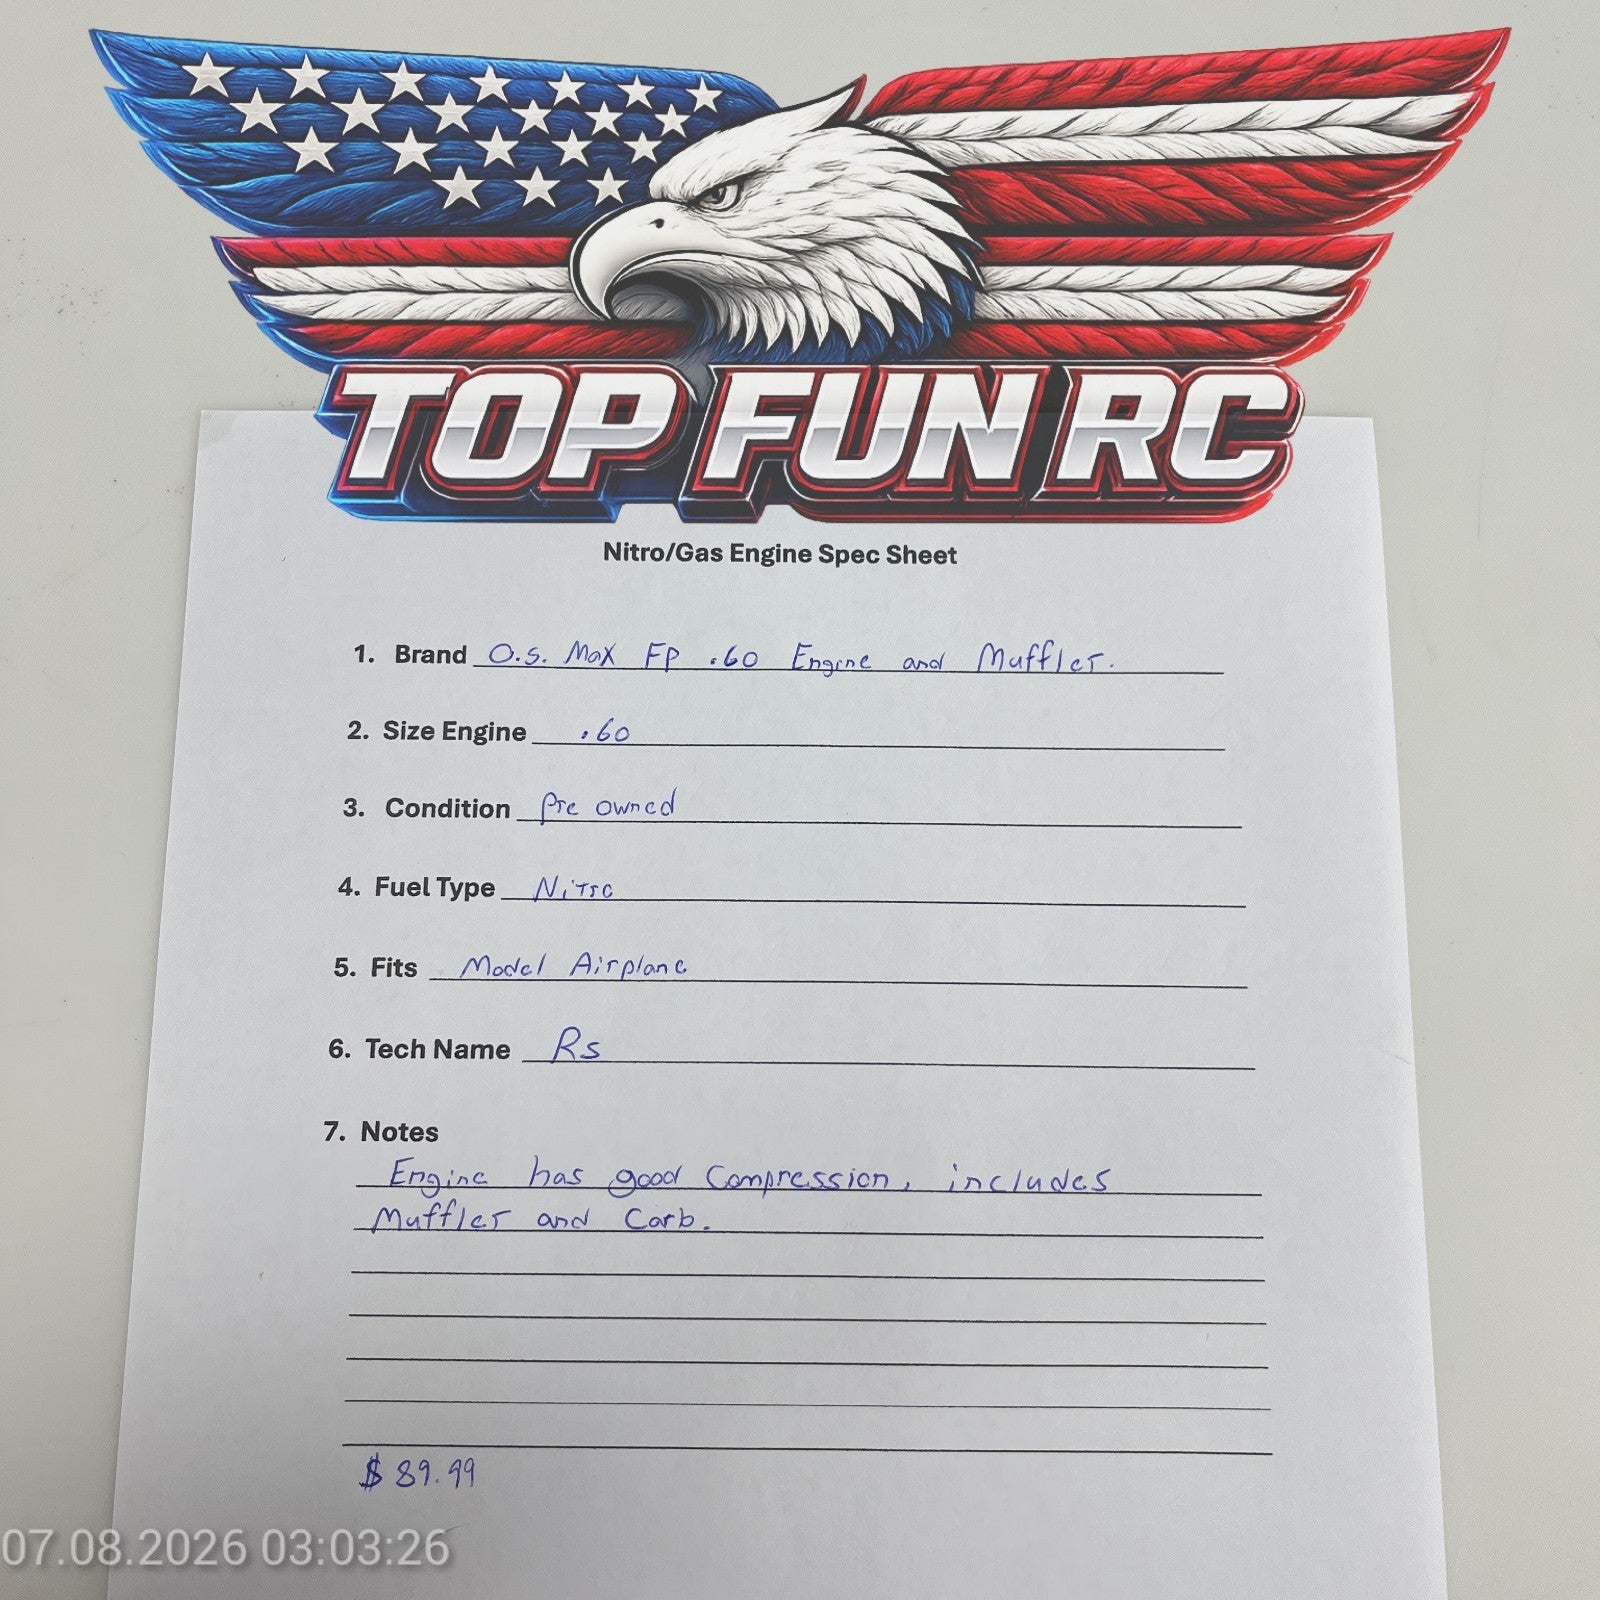 TOP FUN RC
Nitro/Gas Engine Spec Sheet
1. Brand O.S. Max FP .60 Engine and Muffler.
2. Size Engine .60
3. Condition Pre owned
4. Fuel Type Nitro
5. Fits Model Airplane
6. Tech Name Rs
7. Notes
Engine has good Compression, includes
Muffler and Carb.
$ 89.99
07.08.2026 03:03:26